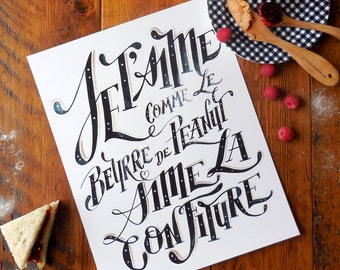 JE T'AIME
COMME LE
BEURRE DE PEANUT
AIME LA
CONFITURE